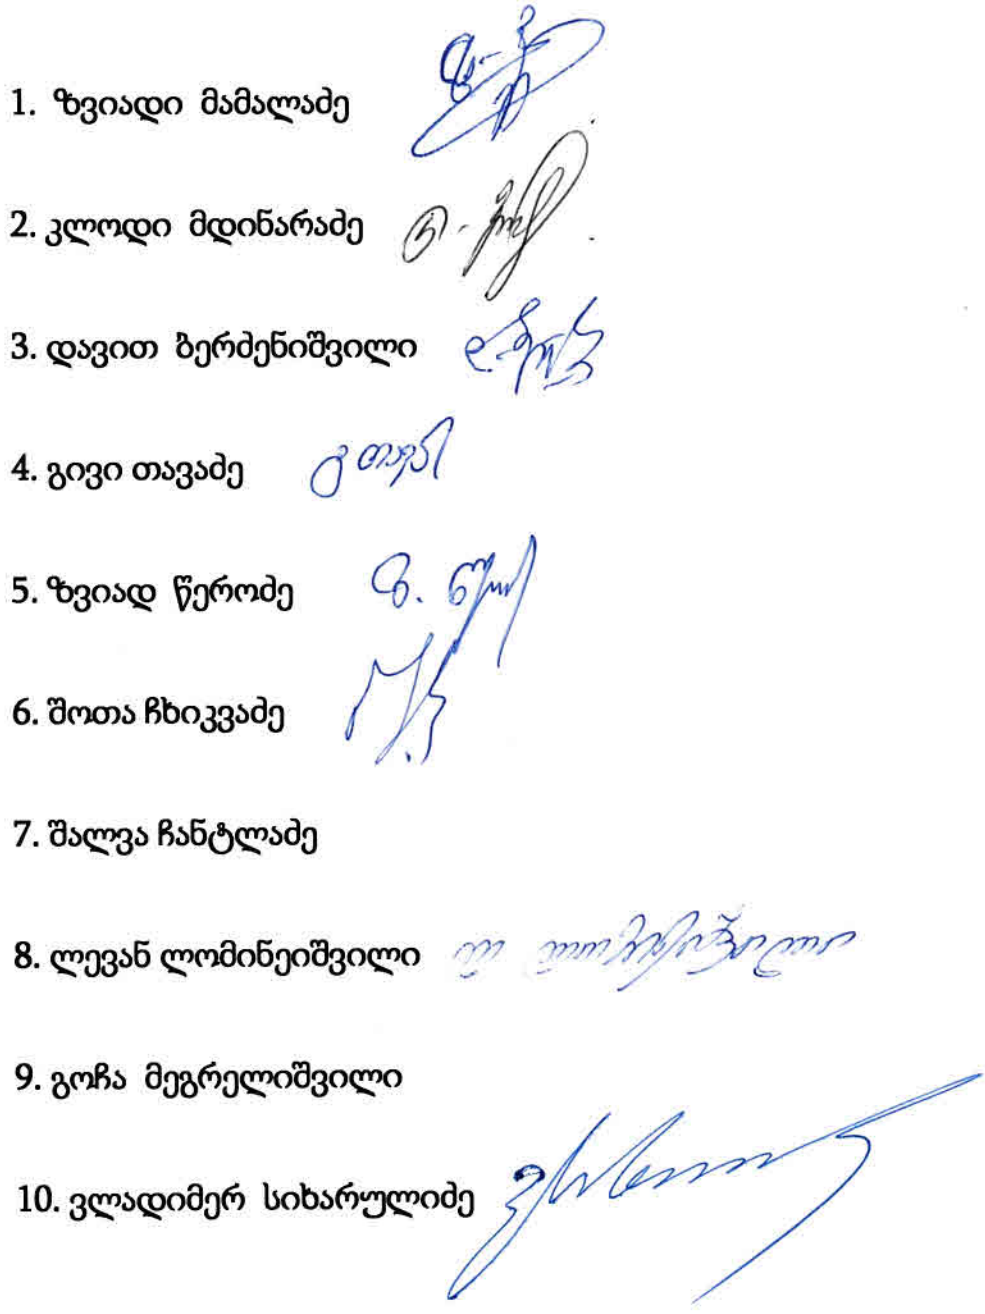 1. ზვიადი მამალაძე
2. კლოდი მდინარაძე
3. დავით ბერძენიშვილი
4. გივი თავაძე
5. ზვიად წეროძე
6. შოთა ჩხიკვაძე
7. შალვა ჩანტლაძე
8. ლევან ლომინეიშვილი
9. გოჩა მეგრელიშვილი
10. ვლადიმერ სიხარულიძე